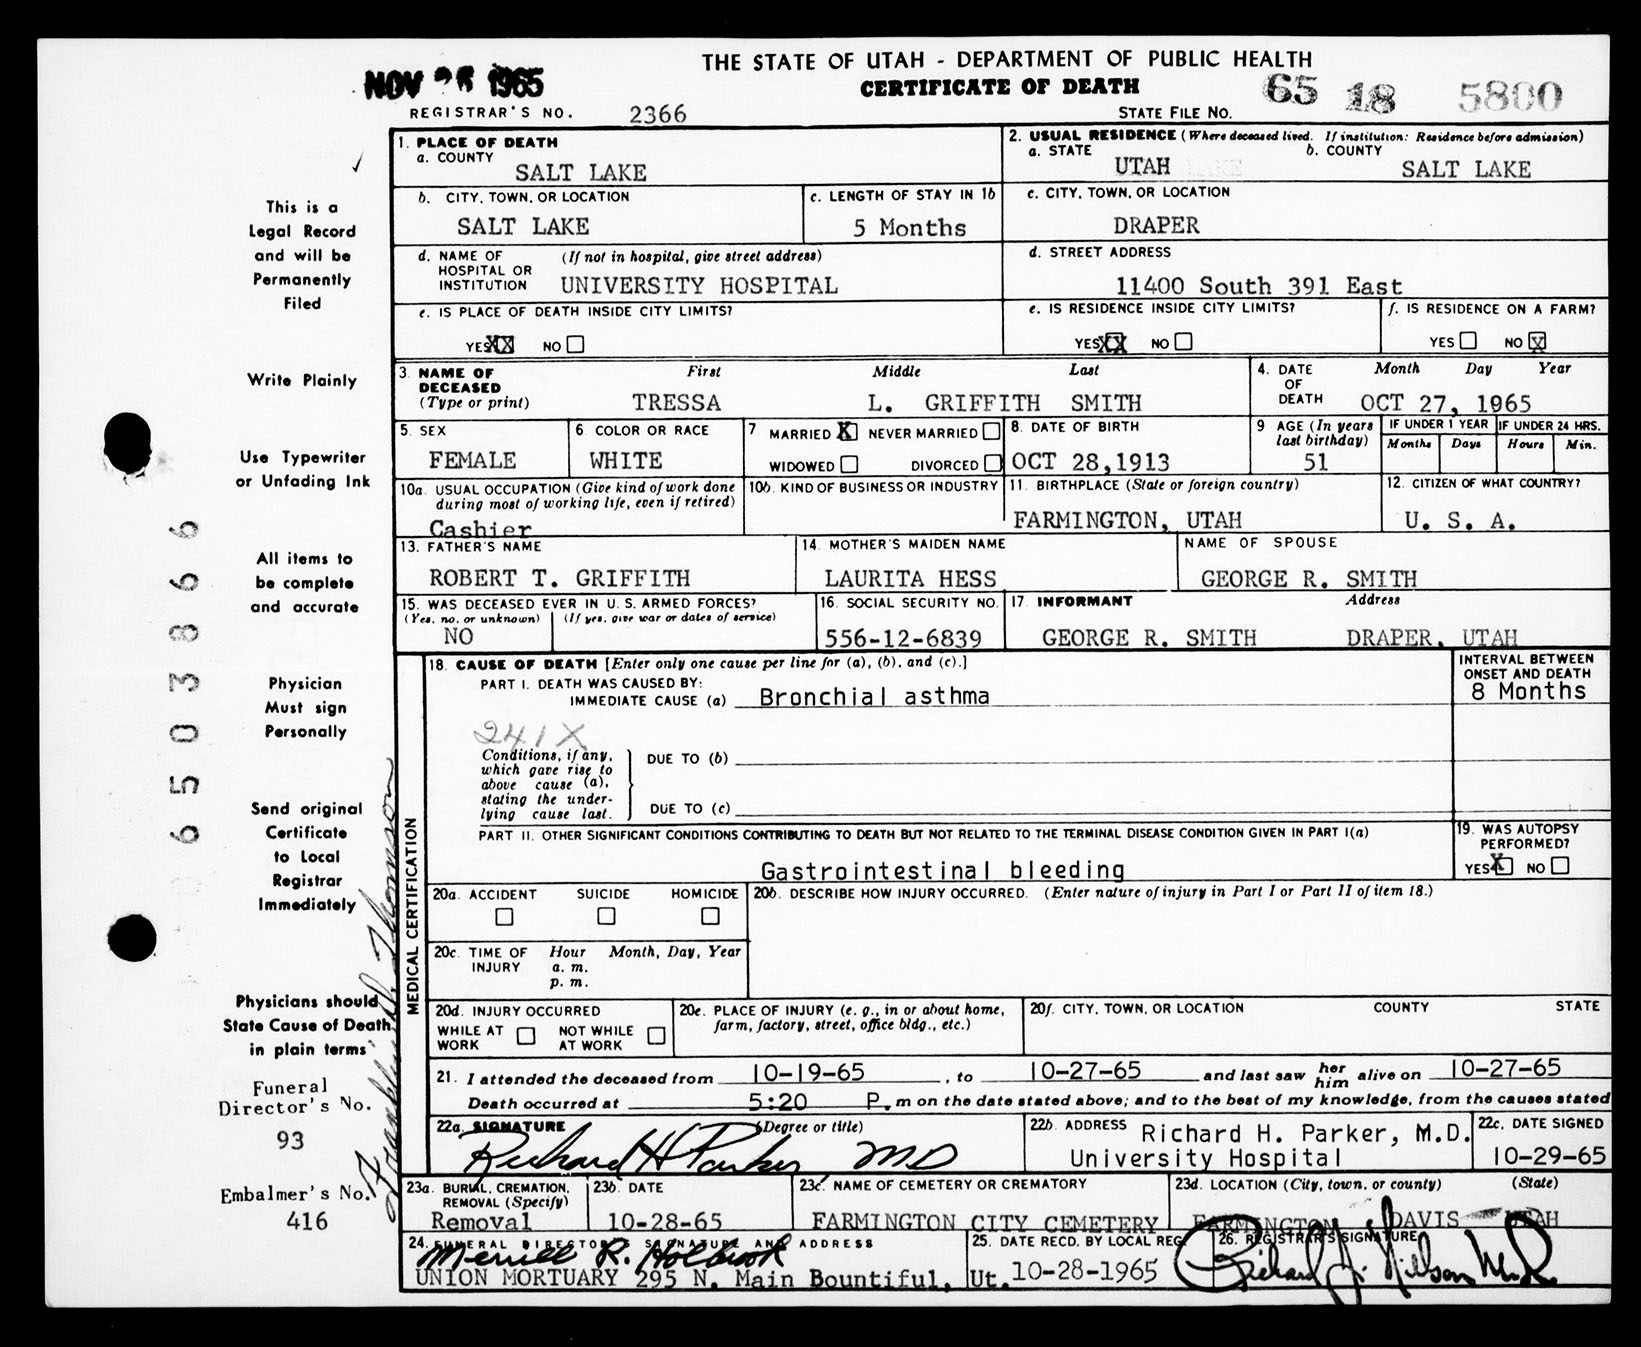 THE STATE OF UTAH - DEPARTMENT OF PUBLIC HEALTH
CERTIFICATE OF DEATH
NOV 26 1965
REGISTRAR'S NO. 2366
STATE FILE NO. 65 18 5800
1. PLACE OF DEATH
a. COUNTY
SALT LAKE
2. USUAL RESIDENCE (Where deceased lived. If institution: Residence before admission)
a. STATE UTAH
b. COUNTY SALT LAKE
b. CITY, TOWN, OR LOCATION
SALT LAKE
c. LENGTH OF STAY IN 1b
5 Months
c. CITY, TOWN, OR LOCATION
DRAPER
d. NAME OF HOSPITAL OR INSTITUTION (If not in hospital, give street address)
UNIVERSITY HOSPITAL
d. STREET ADDRESS
11400 South 391 East
e. IS PLACE OF DEATH INSIDE CITY LIMITS?
YES XX NO
e. IS RESIDENCE INSIDE CITY LIMITS?
YES XX NO
f. IS RESIDENCE ON A FARM?
YES NO X
3. NAME OF DECEASED (Type or print)
First Middle Last
TRESSA L. GRIFFITH SMITH
4. DATE OF DEATH
Month Day Year
OCT 27, 1965
5. SEX
FEMALE
6 COLOR OR RACE
WHITE
7 MARRIED X NEVER MARRIED
WIDOWED DIVORCED
8. DATE OF BIRTH
OCT 28,1913
9 AGE (In years last birthday)
51
IF UNDER 1 YEAR
Months Days
IF UNDER 24 HRS.
Hours Min.
10a. USUAL OCCUPATION (Give kind of work done during most of working life, even if retired)
Cashier
10b. KIND OF BUSINESS OR INDUSTRY
11. BIRTHPLACE (State or foreign country)
FARMINGTON, UTAH
12. CITIZEN OF WHAT COUNTRY?
U. S. A.
13. FATHER'S NAME
ROBERT T. GRIFFITH
14. MOTHER'S MAIDEN NAME
LAURITA HESS
NAME OF SPOUSE
GEORGE R. SMITH
15. WAS DECEASED EVER IN U. S. ARMED FORCES?
(Yes, no, or unknown) (If yes, give war or dates of service)
NO
16. SOCIAL SECURITY NO.
556-12-6839
17. INFORMANT Address
GEORGE R. SMITH DRAPER, UTAH
MEDICAL CERTIFICATION
18. CAUSE OF DEATH [Enter only one cause per line for (a), (b), and (c).]
PART I. DEATH WAS CAUSED BY:
IMMEDIATE CAUSE (a) Bronchial asthma
INTERVAL BETWEEN ONSET AND DEATH
8 Months
241X
Conditions, if any, which gave rise to above cause (a), stating the underlying cause last.
DUE TO (b)
DUE TO (c)
PART II. OTHER SIGNIFICANT CONDITIONS CONTRIBUTING TO DEATH BUT NOT RELATED TO THE TERMINAL DISEASE CONDITION GIVEN IN PART I(a)
Gastrointestinal bleeding
19. WAS AUTOPSY PERFORMED?
YES X NO
20a. ACCIDENT SUICIDE HOMICIDE
20b. DESCRIBE HOW INJURY OCCURRED. (Enter nature of injury in Part I or Part II of item 18.)
20c. TIME OF INJURY Hour Month, Day, Year
a. m.
p. m.
20d. INJURY OCCURRED
WHILE AT WORK NOT WHILE AT WORK
20e. PLACE OF INJURY (e. g., in or about home, farm, factory, street, office bldg., etc.)
20f. CITY, TOWN, OR LOCATION COUNTY STATE
21. I attended the deceased from 10-19-65, to 10-27-65 and last saw her him alive on 10-27-65
Death occurred at 5:20 P. m on the date stated above; and to the best of my knowledge, from the causes stated
22a. SIGNATURE (Degree or title)
Richard H Parker, MD
22b. ADDRESS Richard H. Parker, M.D.
University Hospital
22c. DATE SIGNED
10-29-65
23a. BURIAL, CREMATION, REMOVAL (Specify)
Removal
23b. DATE
10-28-65
23c. NAME OF CEMETERY OR CREMATORY
FARMINGTON CITY CEMETERY
23d. LOCATION (City, town, or county) (State)
FARMINGTON DAVIS UTAH
24. FUNERAL DIRECTOR'S SIGNATURE AND ADDRESS
Merrill R. Holbrook
UNION MORTUARY 295 N. Main Bountiful, Ut.
25. DATE RECD. BY LOCAL REG.
10-28-1965
26. REGISTRAR'S SIGNATURE
Richard J. Nillson M.D.
This is a
Legal Record
and will be
Permanently
Filed
Write Plainly
Use Typewriter
or Unfading Ink
All items to
be complete
and accurate
Physician
Must sign
Personally
Send original
Certificate
to Local
Registrar
Immediately
Physicians should
State Cause of Death
in plain terms
Funeral
Director's No.
93
Embalmer's No.
416
6503866